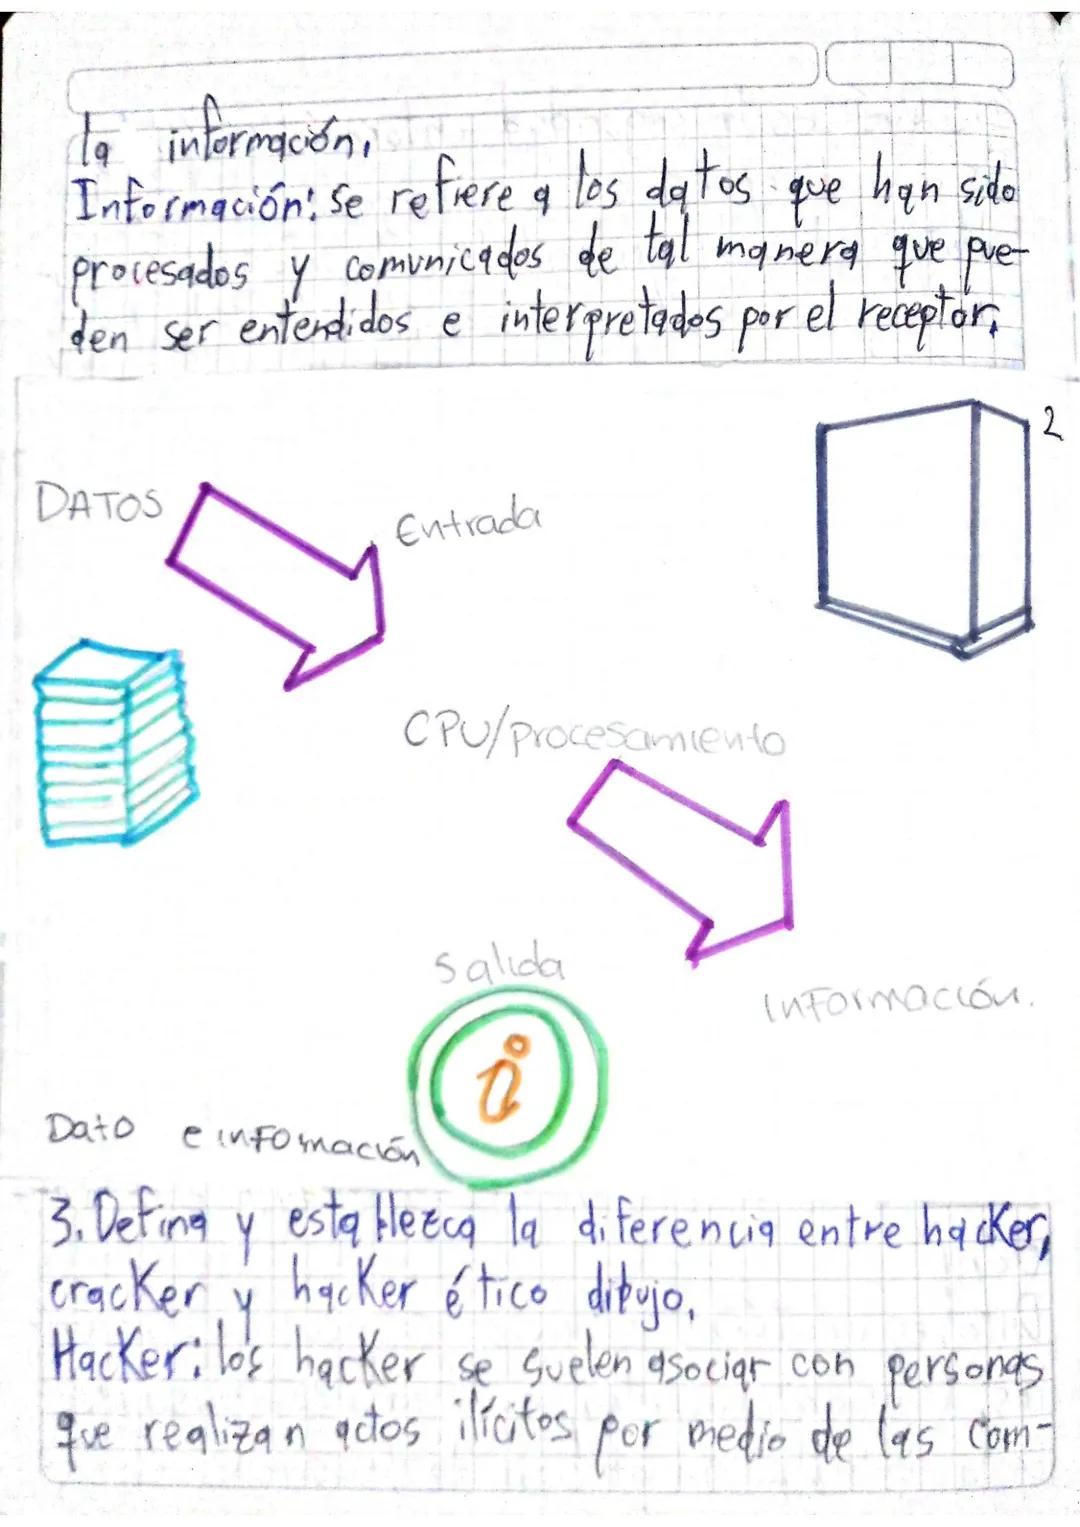 la información.
Información: se refiere a los datos que han sido
procesados y comunicados de tal manera que pue-
den ser entendidos e interpretados por el receptor.
2
DATOS
Entrada
CPU/procesamiento
Salida
Información.
Dato e infomación
3. Defina y establezca la diferencia entre hacker,
cracker y hacker ético dibujo.
Hacker: los hacker se suelen asociar con personas
que realizan actos ilícitos por medio de las com-